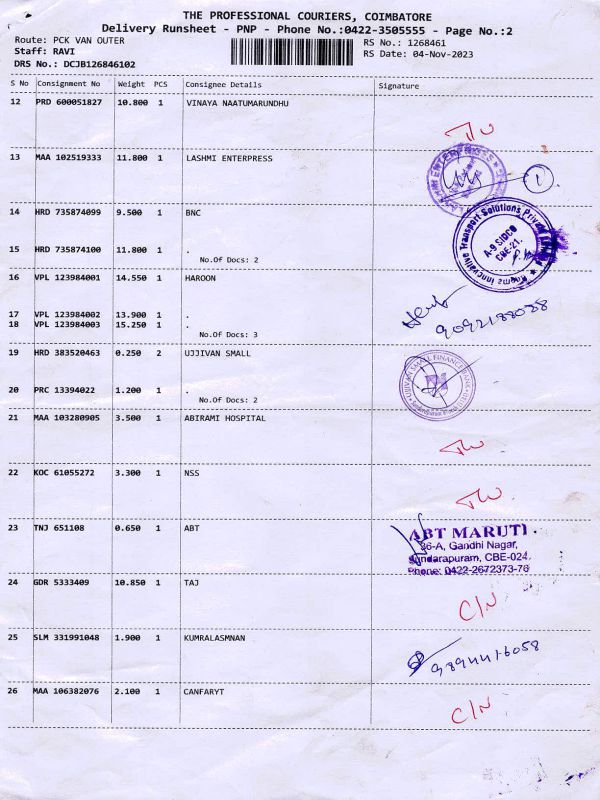 THE PROFESSIONAL COURIERS, COIMBATORE
Delivery Runsheet - PNP - Phone No.:0422-3505555 - Page No.:2
Route: PCK VAN OUTER
RS No.: 1268461
Staff: RAVI
RS Date: 04-Nov-2023
DRS No.: DCJB126846102
S No Consignment No Weight PCS Consignee Details Signature
12 PRD 600051827 10.800 1 VINAYA NAATUMARUNDHU
13 MAA 102519333 11.800 1 LASHMI ENTERPRESS
1
14 HRD 735874099 9.500 1 BNC
A-9 SIDCO
CBE-21.
15 HRD 735874100 11.800 1 .
No.Of Docs: 2
16 VPL 123984001 14.550 1 HAROON
17 VPL 123984002 13.900 1 .
18 VPL 123984003 15.250 1 .
No.Of Docs: 3
19 HRD 383520463 0.250 2 UJJIVAN SMALL
UJJIVAN SMALL FINANCE BANK
20 PRC 13394022 1.200 1 .
No.Of Docs: 2
21 MAA 103280905 3.500 1 ABIRAMI HOSPITAL
22 KOC 61055272 3.300 1 NSS
23 TNJ 651108 0.650 1 ABT
ABT MARUTI
36-A, Gandhi Nagar,
Sundarapuram, CBE-024.
Phone: 0422-2672373-76
24 GDR 5333409 10.850 1 TAJ
C/N
25 SLM 331991048 1.900 1 KUMRALASMNAN
26 MAA 106382076 2.100 1 CANFARYT
C/N